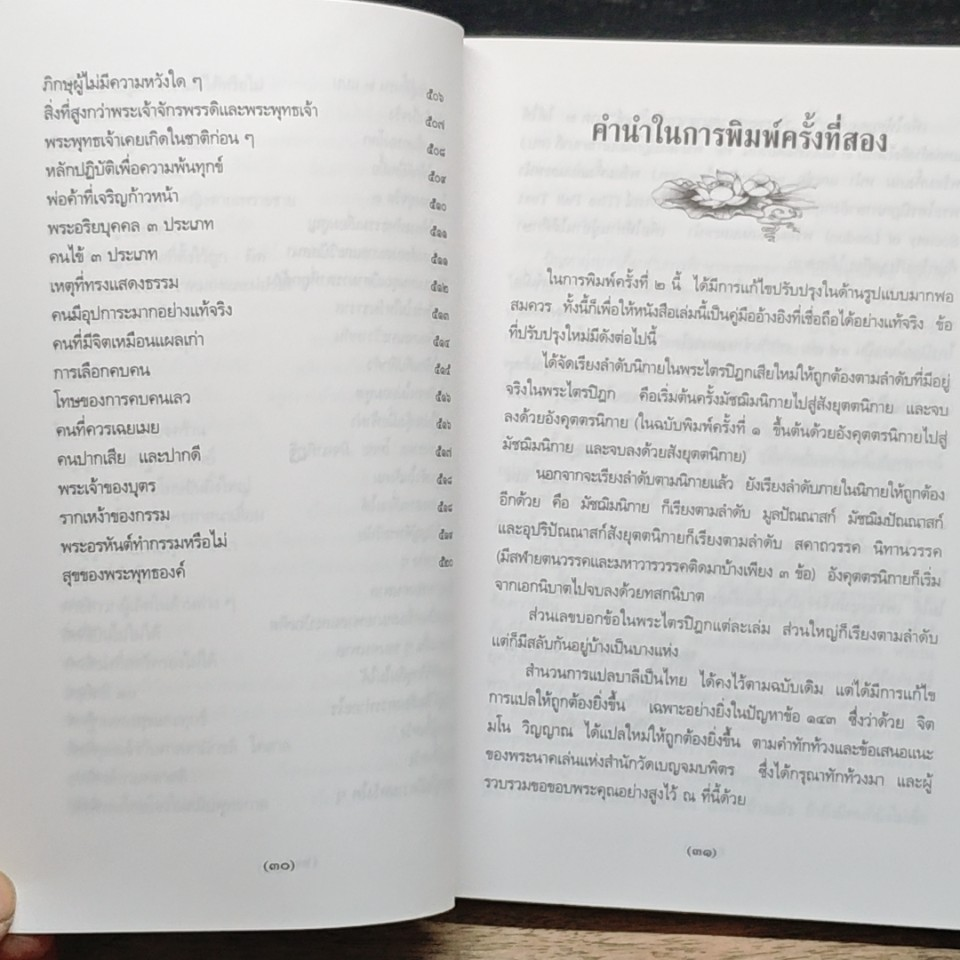 ภิกษุผู้ไม่มีความหวังใด ๆ ๕๐๖
สิ่งที่สูงกว่าพระเจ้าจักรพรรดิและพระพุทธเจ้า ๕๐๗
พระพุทธเจ้าเคยเกิดในชาติก่อน ๆ ๕๐๘
หลักปฏิบัติเพื่อความพ้นทุกข์ ๕๐๙
พ่อค้าที่เจริญก้าวหน้า ๕๑๐
พระอริยบุคคล ๓ ประเภท ๕๑๑
คนไข้ ๓ ประเภท ๕๑๑
เหตุที่ทรงแสดงธรรม ๕๑๒
คนมีอุปการะมากอย่างแท้จริง ๕๑๓
คนที่มีจิตเหมือนแผลเก่า ๕๑๔
การเลือกคบคน ๕๑๕
โทษของการคบคนเลว ๕๑๖
คนที่ควรเฉยเมย ๕๑๖
คนปากเสีย และปากดี ๕๑๗
พระเจ้าของบุตร ๕๑๘
รากเหง้าของกรรม ๕๑๘
พระอรหันต์ทำกรรมหรือไม่ ๕๑๙
สุขของพระพุทธองค์ ๕๒๐
(๓๐)
คำนำในการพิมพ์ครั้งที่สอง
ในการพิมพ์ครั้งที่ ๒ นี้ ได้มีการแก้ไขปรับปรุงในด้านรูปแบบมากพอ
สมควร ทั้งนี้ก็เพื่อให้หนังสือเล่มนี้เป็นคู่มืออ้างอิงที่เชื่อถือได้อย่างแท้จริง ข้อ
ที่ปรับปรุงใหม่มีดังต่อไปนี้
ได้จัดเรียงลำดับนิกายในพระไตรปิฎกเสียใหม่ให้ถูกต้องตามลำดับที่มีอยู่
จริงในพระไตรปิฎก คือเริ่มต้นครั้งมัชฌิมนิกายไปสู่สังยุตตนิกาย และจบ
ลงด้วยอังคุตตรนิกาย (ในฉบับพิมพ์ครั้งที่ ๑ ขึ้นต้นด้วยอังคุตตรนิกายไปสู่
มัชฌิมนิกาย และจบลงด้วยสังยุตตนิกาย)
นอกจากจะเรียงลำดับตามนิกายแล้ว ยังเรียงลำดับภายในนิกายให้ถูกต้อง
อีกด้วย คือ มัชฌิมนิกาย ก็เรียงตามลำดับ มูลปัณณาสก์ มัชฌิมปัณณาสก์
และอุปริปัณณาสก์สังยุตตนิกายก็เรียงตามลำดับ สคาถวรรค นิทานวรรค
(มีสฬายตนวรรคและมหาวารวรรคติดมาบ้างเพียง ๓ ข้อ) อังคุตตรนิกายก็เริ่ม
จากเอกนิบาตไปจบลงด้วยทสกนิบาต
ส่วนเลขบอกข้อในพระไตรปิฎกแต่ละเล่ม ส่วนใหญ่ก็เรียงตามลำดับ
แต่ก็มีสลับกันอยู่บ้างเป็นบางแห่ง
สำนวนการแปลบาลีเป็นไทย ได้คงไว้ตามฉบับเดิม แต่ได้มีการแก้ไข
การแปลให้ถูกต้องยิ่งขึ้น เฉพาะอย่างยิ่งในปัญหาข้อ ๑๔๓ ซึ่งว่าด้วย จิต
มโน วิญญาณ ได้แปลใหม่ให้ถูกต้องยิ่งขึ้น ตามคำทักท้วงและข้อเสนอแนะ
ของพระนาคเล่นแห่งสำนักวัดเบญจมบพิตร ซึ่งได้กรุณาทักท้วงมา และผู้
รวบรวมขอขอบพระคุณอย่างสูงไว้ ณ ที่นี้ด้วย
(๓๑)